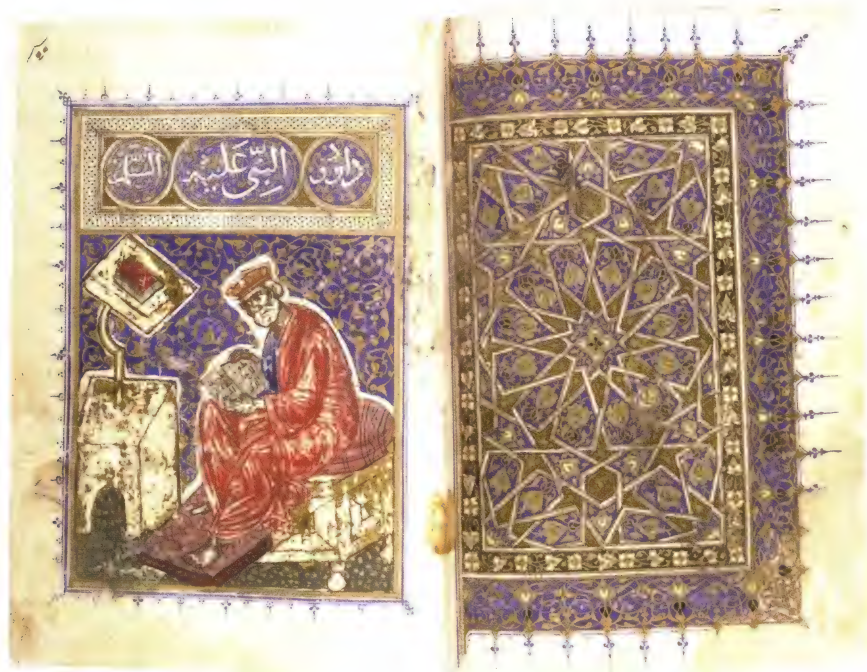 داوود النبي عليه السلم